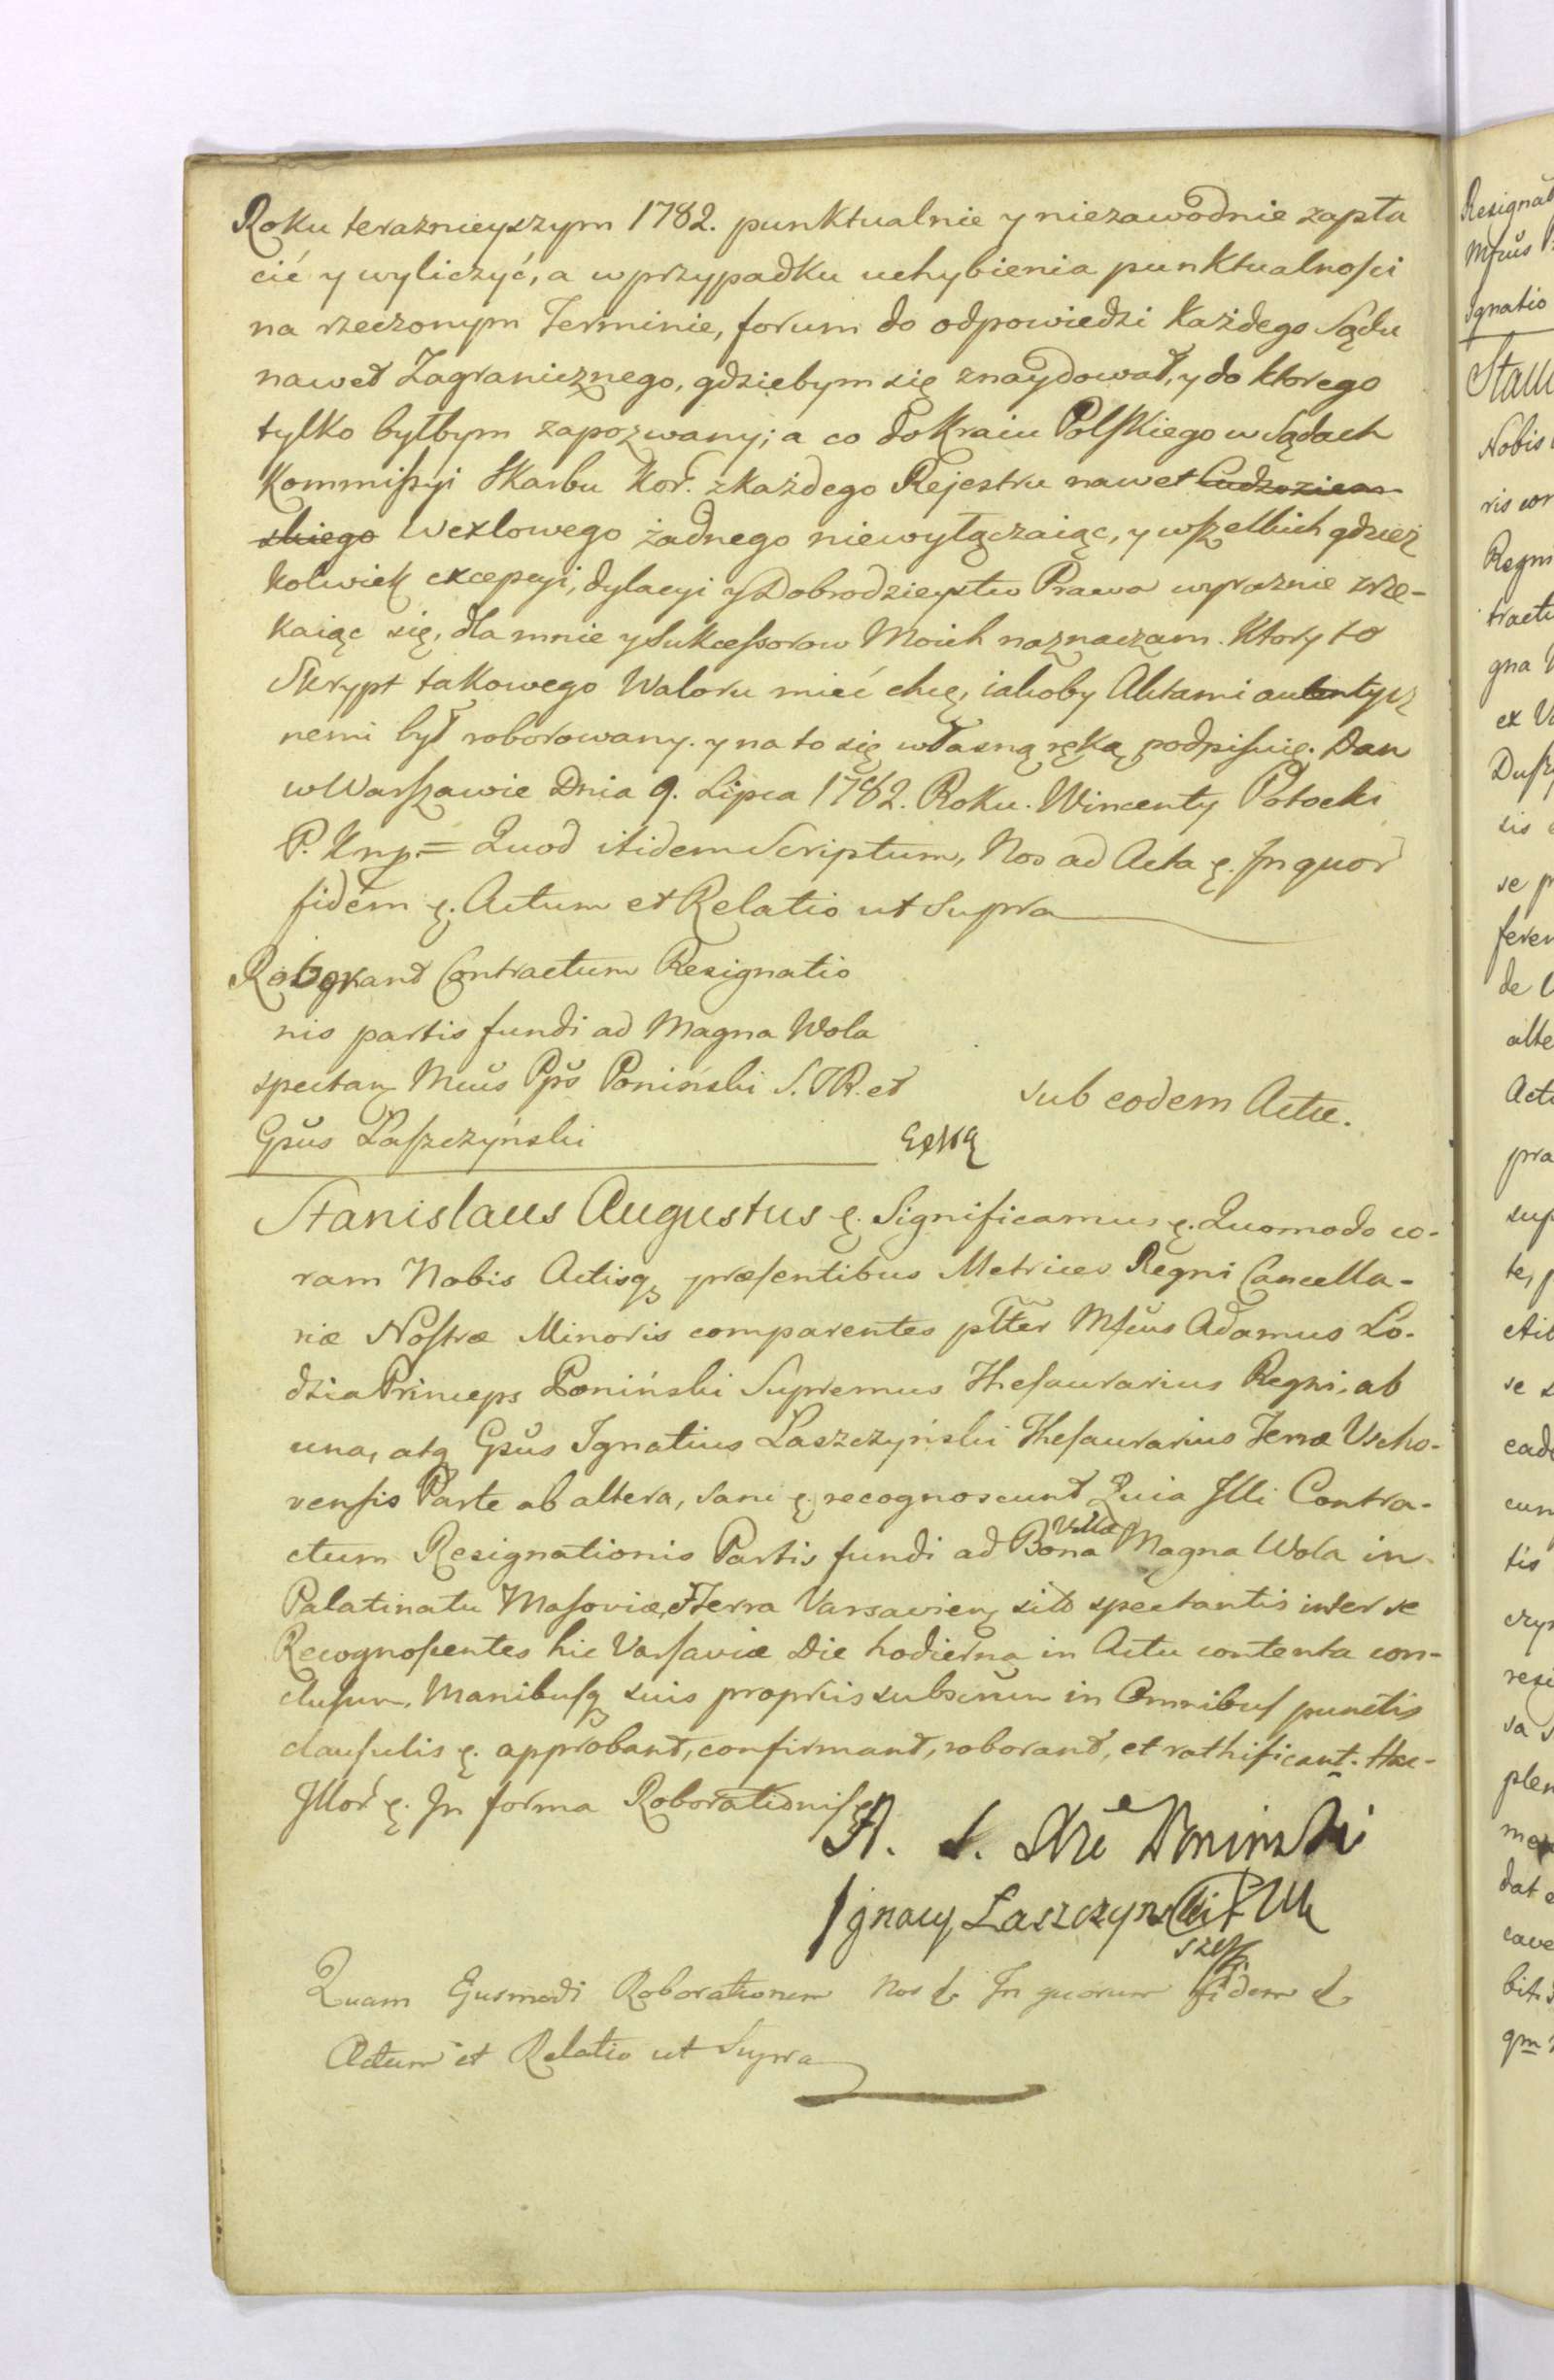 Roku teraznieyszym 1782. punktualnie y niezawodnie zapła
cić y wyliczyć, a w przypadku uchybienia punktualności
na rzeczonym Terminie, forum do odpowiedzi każdego Sądu
nawet Zagranicznego, gdziebym się znaydował, y do ktorego
tylko byłbym zapozwany; a co do Kraiu Polskiego w Sądach
Kommissyi Skarbu Kor. z każdego Rejestru nawet Cudzoziem
skiego Wexlowego żadnego niewyłączaiąc, y wszelkich gdzież
kolwiek excepcyi, dylacyi y Dobrodzieystw Prawa wyraznie zrze-
kaiąc się, dla mnie y Sukcessorow Moich naznaczam. Ktory to
Skrypt takowego Waloru mieć chcę, iakoby Aktami autentycz
nemi był roborowany. y na to się własną ręką podpisuię. Dan
w Warszawie Dnia 9. Lipca 1782. Roku. Wincenty Potocki
P. K mp. = Quod itidem Scriptum, Nos ad Acta &. In quor
fidem &. Actum et Relatio ut Supra
Roborant Contractum Resignatio
nis partis fundi ad Magna Wola
spectan Mcus Pps Poniński S. T R. et
Gsus Łaszczyński
sub eodem Actu.
Stanislaus Augustus &. Significamus &. Quomodo co-
ram Nobis Actisq præsentibus Metrices Regni Cancella-
riæ Nostræ Minoris comparentes pltter Mfcus Adamus Ło-
dzia Princeps Poniński Supremus Thesaurarius Regni, ab
una, atq Gsus Ignatius Łaszczyński Thesaurarius Terræ Vscho-
vensis Parte ab altera, sani &. recognoscunt Quia Illi Contra-
ctum Resignationis Partis fundi ad Bona Villa Magna Wola in
Palatinatu Masoviæ, Terra Varsavien sitò spectantis inter se
Recognoscentes hic Varsaviæ Die hodierna in Actu contenta con-
clusum, Manibusq suis propriis subscrum in Omnibus punctis
clausulis &. approbant, confirmant, roborant, et rathificant. Hac
Illor &. In forma Roborationis &.
A. X. Poninski
Ignacy Laszczynski
Quam Ejusmodi Roborationem Nos & In quorum fidem &
Actum et Relatio ut Supra
Resignat
Mfcus
Ignatio
Stani
Nobis
ris cor
Regni
tractu
gna
ex Va
sis
se p
feren
de
alte
Actu
pra
sup
te,
ctis
se
eade
cum
tis
czyn
resi
sa s
plen
dat
cave
bit
qm